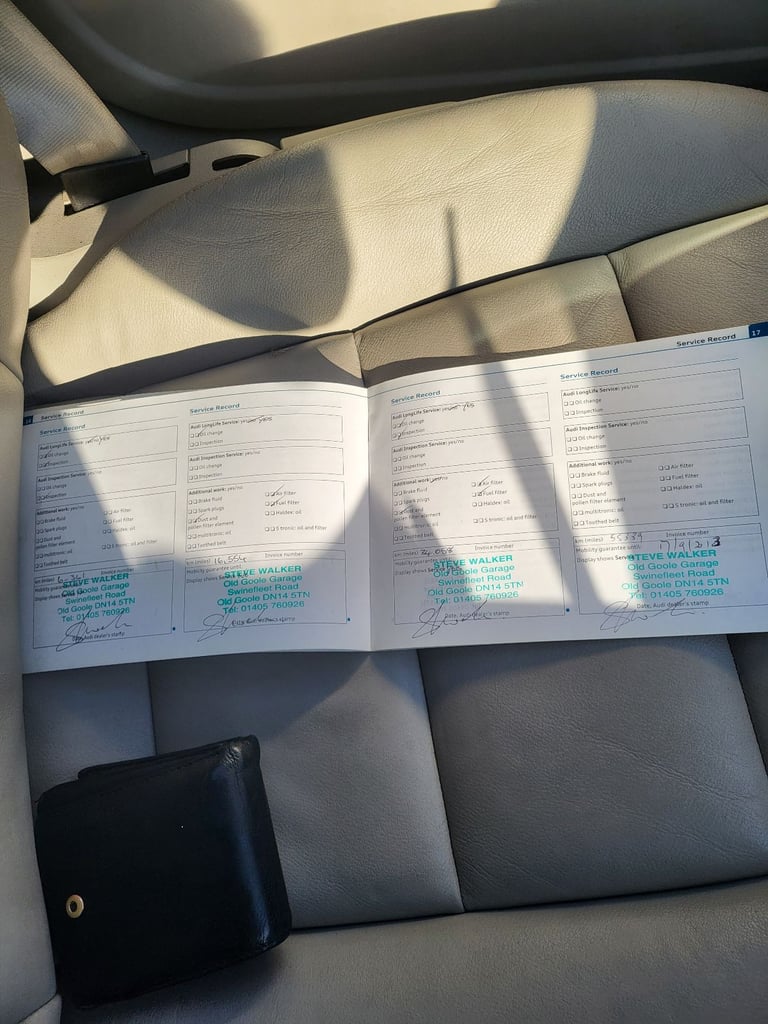 Service Record
Service Record
Audi LongLife Service: yes/no yes
Oil change
Inspection
Audi Inspection Service: yes/no
Oil change
Inspection
Additional work: yes/no
Brake fluid
Spark plugs
Dust and
pollen filter element
multitronic: oil
Toothed belt
Air filter
Fuel filter
Haldex: oil
S tronic: oil and filter
Invoice number
km (miles)
STEVE WALKER
Old Goole Garage
Swinefleet Road
Old Goole DN14 5TN
Tel: 01405 760926
Date, Audi dealer's stamp
Service Record
Audi LongLife Service: yes/no yes
Oil change
Inspection
Audi Inspection Service: yes/no
Oil change
Inspection
Additional work: yes/no
Brake fluid
Spark plugs
Dust and
pollen filter element
multitronic: oil
Toothed belt
Air filter
Fuel filter
Haldex: oil
S tronic: oil and filter
Invoice number
km (miles) 16,554
Mobility guarantee until:
Display shows
STEVE WALKER
Old Goole Garage
Swinefleet Road
Old Goole DN14 5TN
Tel: 01405 760926
Date, Audi dealer's stamp
Service Record
Audi LongLife Service: yes/no yes
Oil change
Inspection
Audi Inspection Service: yes/no
Oil change
Inspection
Additional work: yes/no
Brake fluid
Spark plugs
Dust and
pollen filter element
multitronic: oil
Toothed belt
Air filter
Fuel filter
Haldex: oil
S tronic: oil and filter
Invoice number
km (miles)
Mobility guarantee until:
Display shows
STEVE WALKER
Old Goole Garage
Swinefleet Road
Old Goole DN14 5TN
Tel: 01405 760926
Date, Audi dealer's stamp
Service Record 17
Service Record
Audi LongLife Service: yes/no
Oil change
Inspection
Audi Inspection Service: yes/no
Oil change
Inspection
Additional work: yes/no
Brake fluid
Spark plugs
Dust and
pollen filter element
multitronic: oil
Toothed belt
Air filter
Fuel filter
Haldex: oil
S tronic: oil and filter
Invoice number
km (miles)
Mobility guarantee until:
Display shows
STEVE WALKER
Old Goole Garage
Swinefleet Road
Old Goole DN14 5TN
Tel: 01405 760926
Date, Audi dealer's stamp